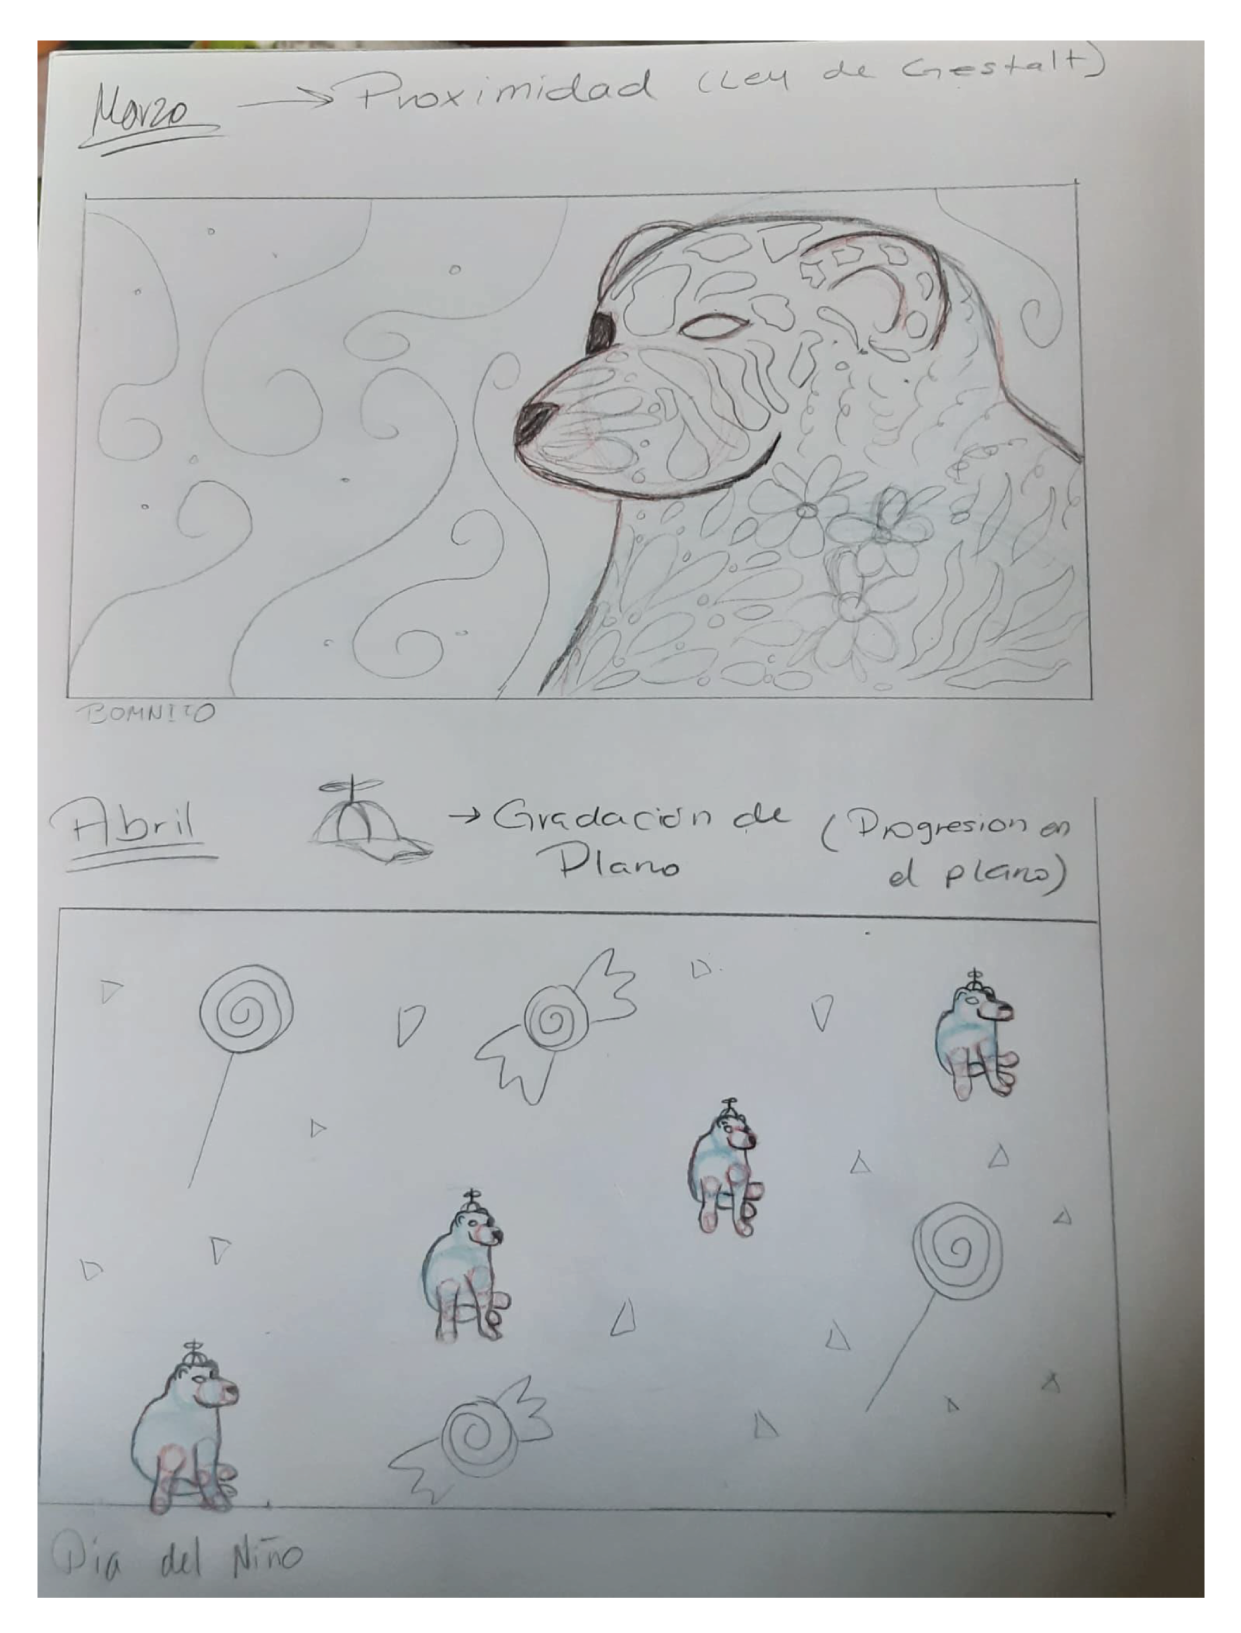 Marzo → Proximidad (Ley de Gestalt)
BOMNITO
Abril → Gradación de Plano (Progresion en el plano)
Dia del Niño